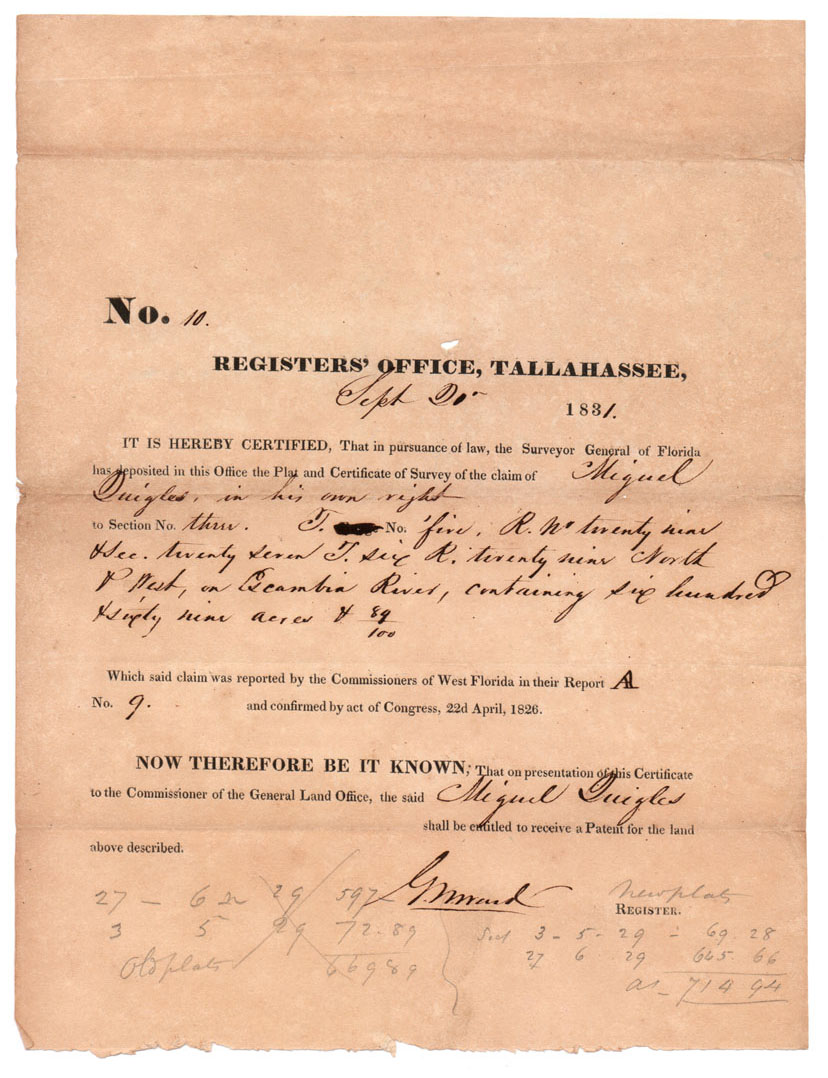 No. 10.
REGISTERS' OFFICE, TALLAHASSEE,
Sept 1831.
IT IS HEREBY CERTIFIED, That in pursuance of law, the Surveyor General of Florida
has deposited in this Office the Plat and Certificate of Survey of the claim of Miguel
Quigles, in his own right
to Section No. three. T. No. five, R. No twenty nine
& Sec. twenty seven T. six R. twenty nine North
& West, on Escambia River, containing six hundred
& sixty nine acres & 89/100
Which said claim was reported by the Commissioners of West Florida in their Report A
No. 9. and confirmed by act of Congress, 22d April, 1826.
NOW THEREFORE BE IT KNOWN, That on presentation of this Certificate
to the Commissioner of the General Land Office, the said Miguel Quigles
shall be entitled to receive a Patent for the land
above described.
G. W. Ward
REGISTER.
27 - 6 29 597
3 5 29 72.89
Old plats 669 89
New plats
Sect 3 - 5 - 29 - 69.28
27 6 29 645 66
714 94